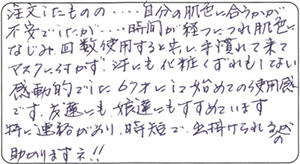 注文したものの・・・・・自分の肌色に合うかが
不安でしたが・・・・・時間が経つにつれ肌色に
なじみ回数使用すると少し手慣れて来て
マスクに付かず 汗にも化粧くずれもしない
感動的でした 67才にして始めての使用感
です。友達にも娘達にもすすめています
特に連絡があり、時短で出掛けられるどの
助かりますネ!!